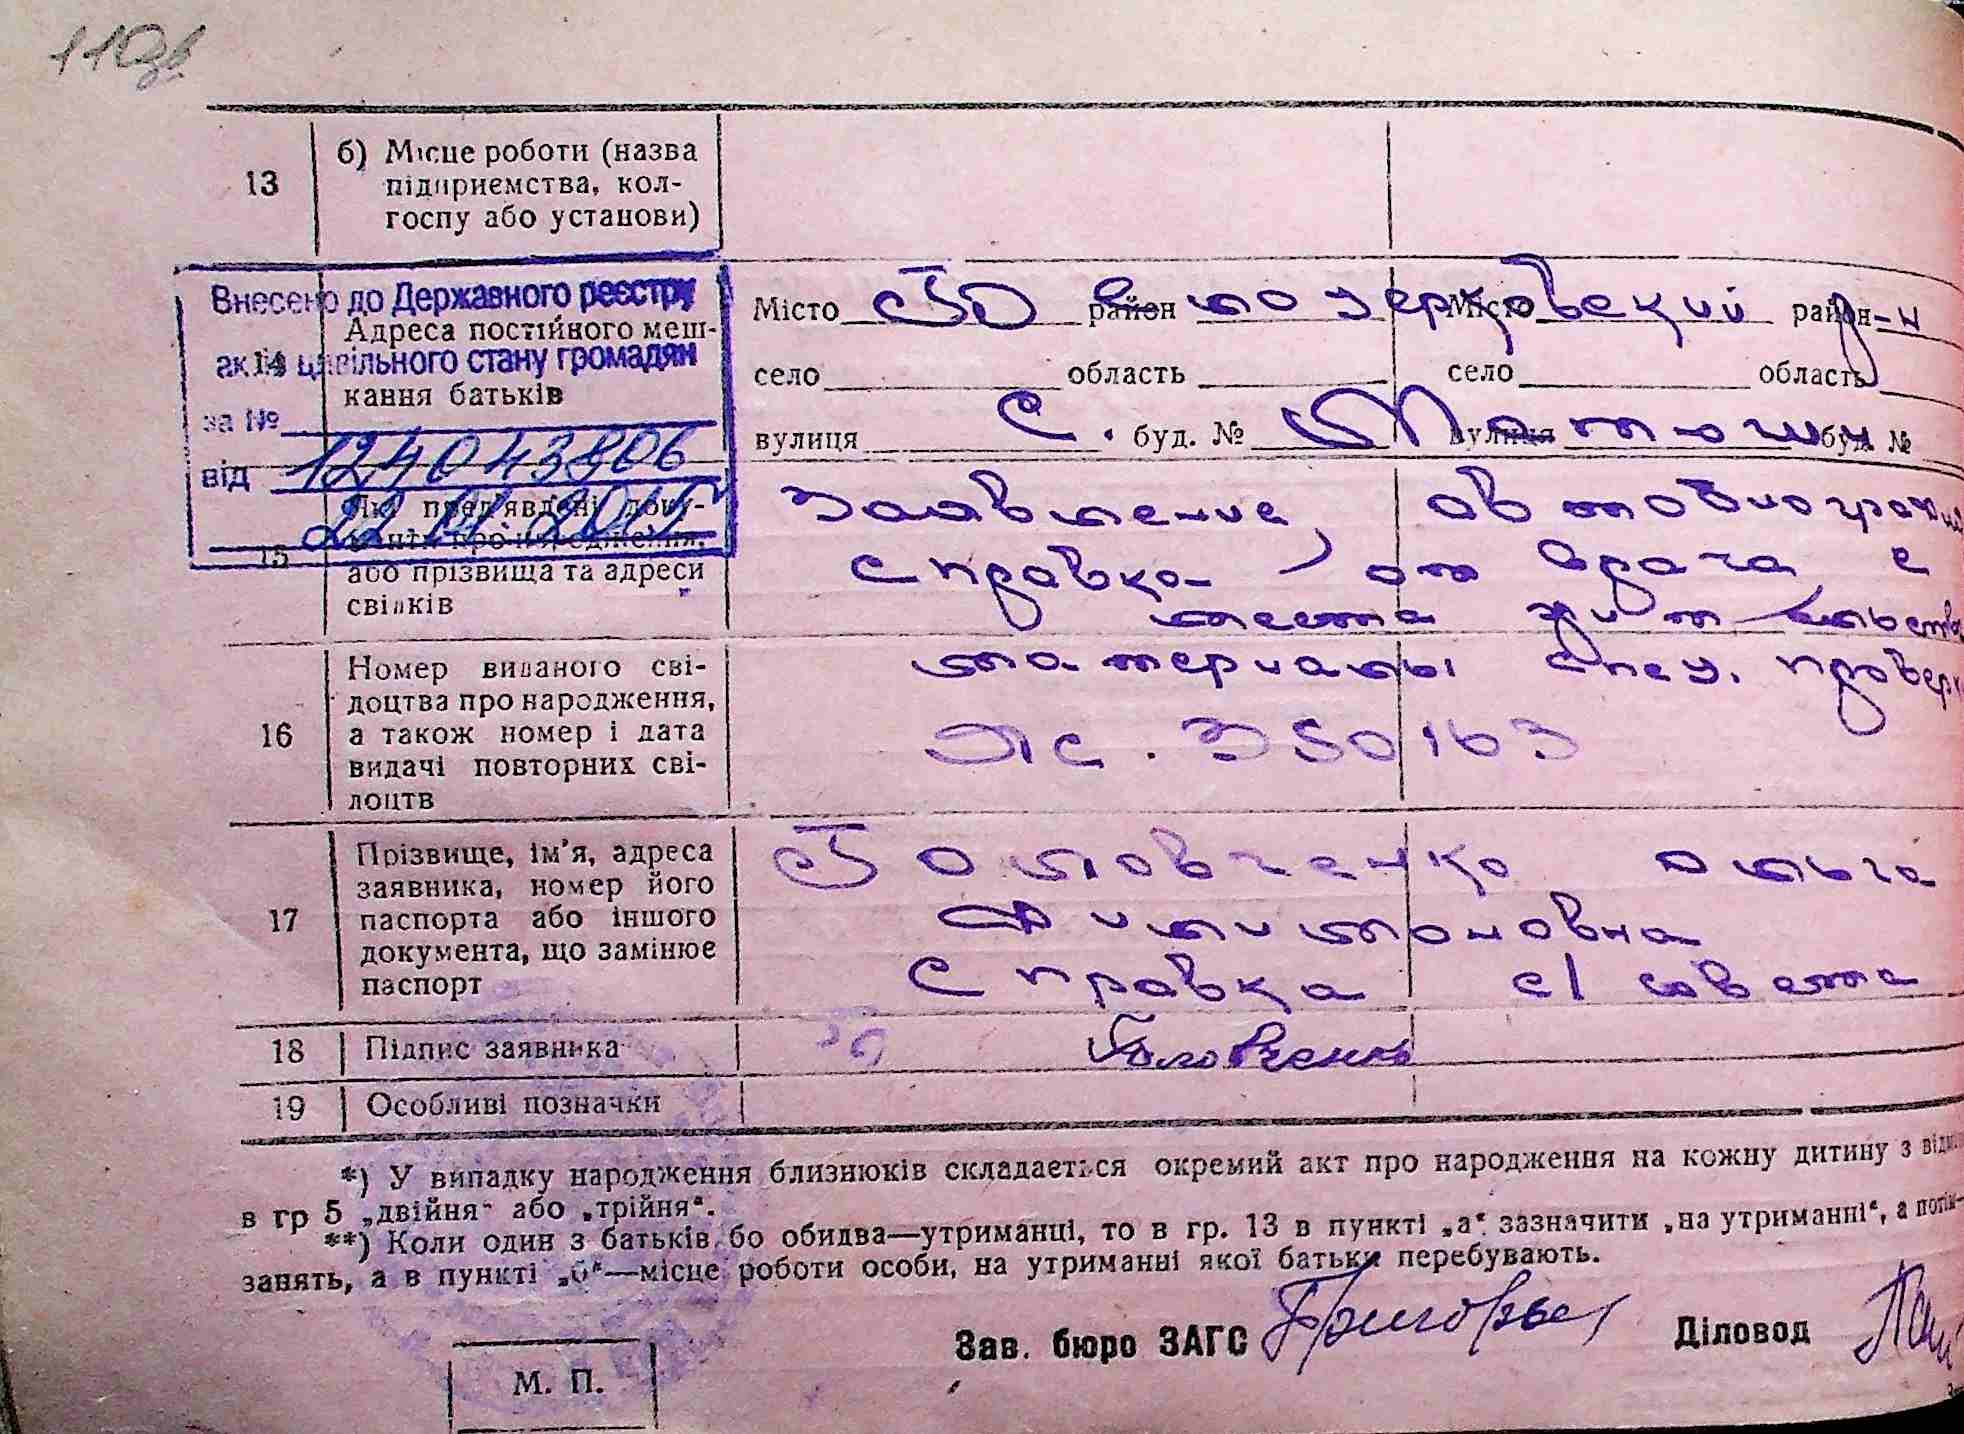 110зв.
13 б) Місце роботи (назва
підприємства, кол-
госпу або установи)
Внесено до Державного реєстру
актів цивільного стану громадян
за № 124043806
від 22 2015
14 Адреса постійного меш-
кання батьків
Місто район Місто район
Белоцерковский р-н
село область село область
вулиця буд. № вулиця буд. №
с. Матюши
15 Які пред'явлені доку-
менти про народження,
або прізвища та адреси
свідків
Заявление, автобиография
справка от врача, с
места жительства
материалы спец. проверк
16 Номер виданого сві-
доцтва про народження,
а також номер і дата
видачі повторних сві-
доцтв
ЯС. 350163
17 Прізвище, ім'я, адреса
заявника, номер його
паспорта або іншого
документа, що замінює
паспорт
Головченко Ольга
Филимоновна
Справка с/совета
18 Підпис заявника Головченко
19 Особливі позначки
*) У випадку народження близнюків складається окремий акт про народження на кожну дитину з
в гр 5 „двійня" або „трійня".
**) Коли один з батьків бо обидва—утриманці, то в гр. 13 в пункті „а" зазначити „на утриманні", а
занять, а в пункті „б"—місце роботи особи, на утриманні якої батьки перебувають.
Зав. бюро ЗАГС Діловод
М. П.